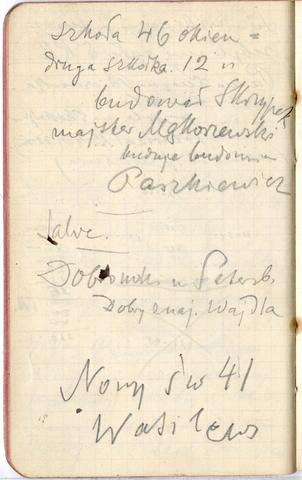 szkoła 46 okien =
druga szkółka. 12 u
budował Skrzypek
majster Mgłoszewski
buduje budowni
Paszkiewicz
Salve.
Dobronok. u Petersb.
Dobry znaj. Wajdla
Nowy Św 41
Wasilews